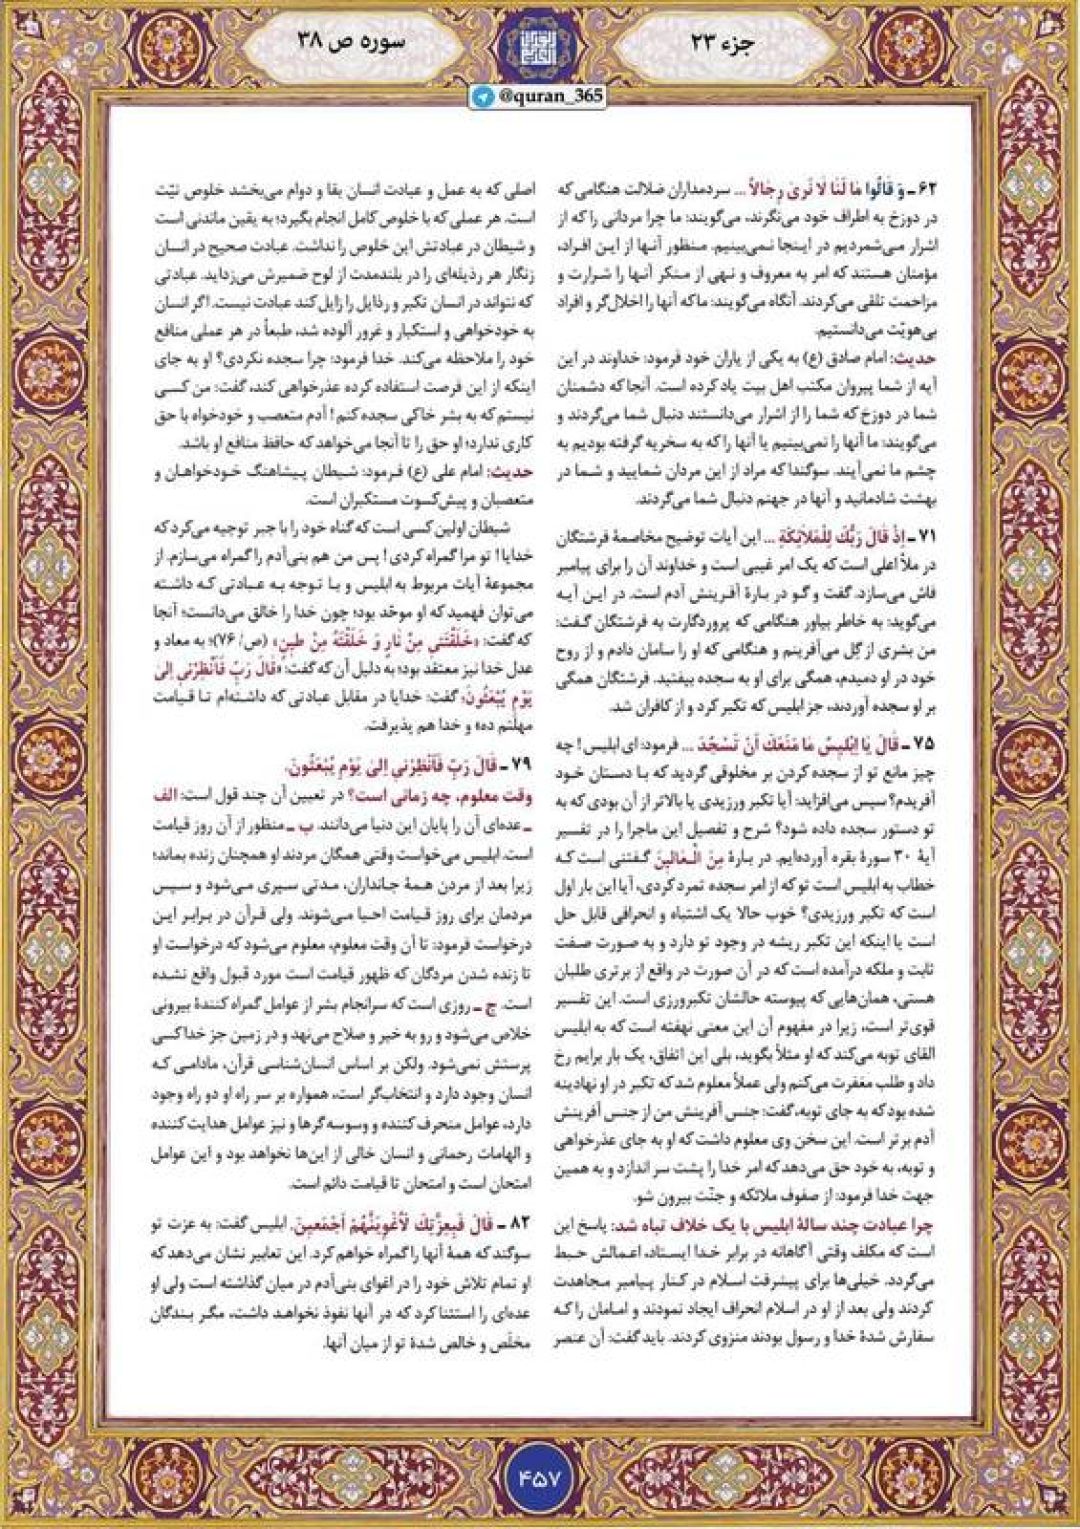 جزء ۲۳
سوره ص ۳۸
@quran_365
۶۲ ـ وَ قَالُوا مَا لَنَا لَا نَرىٰ رِجَالاً ... سردمداران ضلالت هنگامی که
در دوزخ به اطراف خود می‌نگرند، می‌گویند: ما چرا مردانی را که از
اشرار می‌شمردیم در اینجا نمی‌بینیم. منظور آنها از این افراد،
مؤمنان هستند که امر به معروف و نهی از منکر آنها را شرارت و
مزاحمت تلقی می‌کردند. آنگاه می‌گویند: ما که آنها را اخلال‌گر و افراد
بی‌هویّت می‌دانستیم.
حدیث: امام صادق (ع) به یکی از یاران خود فرمود: خداوند در این
آیه از شما پیروان مکتب اهل بیت یاد کرده است. آنجا که دشمنان
شما در دوزخ که شما را از اشرار می‌دانستند دنبال شما می‌گردند و
می‌گویند: ما آنها را نمی‌بینیم یا آنها را که به سخریه گرفته بودیم به
چشم ما نمی‌آیند. سوگند! که مراد از این مردان شمایید و شما در
بهشت شادمانید و آنها در جهنم دنبال شما می‌گردند.
۷۱ ـ اِذْ قَالَ رَبُّكَ لِلْمَلآئِكَةِ ... این آیات توضیح مخاصمهٔ فرشتگان
در ملأ اعلی است که یک امر غیبی است و خداوند آن را برای پیامبر
فاش می‌سازد. گفت و گو در بارهٔ آفرینش آدم است. در این آیه
می‌گوید: به خاطر بیاور هنگامی که پروردگارت به فرشتگان گفت:
من بشری از گِل می‌آفرینم و هنگامی که او را سامان دادم و از روح
خود در او دمیدم، همگی برای او به سجده بیفتید. فرشتگان همگی
بر او سجده آوردند، جز ابلیس که تکبر کرد و از کافران شد.
۷۵ ـ قَالَ يَا اِبْلِيسُ مَا مَنَعَكَ اَنْ تَسْجُدَ ... فرمود: ای ابلیس! چه
چیز مانع تو از سجده کردن بر مخلوقی گردید که با دستان خود
آفریدم؟ سپس می‌افزاید: آیا تکبر ورزیدی یا بالاتر از آن بودی که به
تو دستور سجده داده شود؟ شرح و تفصیل این ماجرا را در تفسیر
آیهٔ ۳۰ سورهٔ بقره آورده‌ایم. در بارهٔ مِنَ الْـعَالِينَ گفتنی است که
خطاب به ابلیس است تو که از امر سجده تمرد کردی، آیا این بار اول
است که تکبر ورزیدی؟ خوب حالا یک اشتباه و انحرافی قابل حل
است یا اینکه این تکبر ریشه در وجود تو دارد و به صورت صفت
ثابت و ملکه درآمده است که در آن صورت در واقع از برتری طلبان
هستی، همان‌هایی که پیوسته حالشان تکبرورزی است. این تفسیر
قوی‌تر است، زیرا در مفهوم آن این معنی نهفته است که به ابلیس
القای توبه می‌کند که او مثلاً بگوید، بلی این اتفاق، یک بار برایم رخ
داد و طلب مغفرت می‌کنم ولی عملاً معلوم شد که تکبر در او نهادینه
شده بود که به جای توبه، گفت: جنس آفرینش من از جنس آفرینش
آدم برتر است. این سخن وی معلوم داشت که او به جای عذرخواهی
و توبه، به خود حق می‌دهد که امر خدا را پشت سر اندازد و به همین
جهت خدا فرمود: از صفوف ملائکه و جنّت بیرون شو.
چرا عبادت چند سالهٔ ابلیس با یک خلاف تباه شد: پاسخ این
است که مکلف وقتی آگاهانه در برابر خدا ایستاد، اعمالش حبط
می‌گردد. خیلی‌ها برای پیشرفت اسلام در کنار پیامبر مجاهدت
کردند ولی بعد از او در اسلام انحراف ایجاد نمودند و امامان را که
سفارش شدهٔ خدا و رسول بودند منزوی کردند. باید گفت: آن عنصر
اصلی که به عمل و عبادت انسان بقا و دوام می‌بخشد خلوص نیّت
است. هر عملی که با خلوص کامل انجام بگیرد؛ به یقین ماندنی است
و شیطان در عبادتش این خلوص را نداشت. عبادت صحیح در انسان
زنگار هر رذیله‌ای را در بلندمدت از لوح ضمیرش می‌زداید. عبادتی
که نتواند در انسان تکبر و رذایل را زایل کند عبادت نیست. اگر انسان
به خودخواهی و استکبار و غرور آلوده شد، طبعاً در هر عملی منافع
خود را ملاحظه می‌کند. خدا فرمود: چرا سجده نکردی؟ او به جای
اینکه از این فرصت استفاده کرده عذرخواهی کند، گفت: من کسی
نیستم که به بشر خاکی سجده کنم! آدم متعصب و خودخواه با حق
کاری ندارد؛ او حق را تا آنجا می‌خواهد که حافظ منافع او باشد.
حدیث: امام علی (ع) فرمود: شیطان پیشاهنگ خودخواهان و
متعصبان و پیش‌کسوت مستکبران است.
شیطان اولین کسی است که گناه خود را با جبر توجیه می‌کرد که
خدایا! تو مرا گمراه کردی! پس من هم بنی‌آدم را گمراه می‌سازم. از
مجموعهٔ آیات مربوط به ابلیس و با توجه به عبادتی که داشته
می‌توان فهمید که او موحّد بود؛ چون خدا را خالق می‌دانست؛ آنجا
که گفت: «خَلَقْتَنِي مِنْ نَارٍ وَ خَلَقْتَهُ مِنْ طِينٍ» (ص/ ۷۶)؛ به معاد و
عدل خدا نیز معتقد بود؛ به دلیل آن که گفت: «قَالَ رَبِّ فَاَنْظِرْنِي اِلىٰ
يَوْمِ يُبْعَثُونَ» گفت: خدایا در مقابل عبادتی که داشته‌ام تا قیامت
مهلتم ده» و خدا هم پذیرفت.
۷۹ ـ قَالَ رَبِّ فَاَنْظِرْنِي اِلىٰ يَوْمِ يُبْعَثُونَ.
وقت معلوم، چه زمانی است؟ در تعیین آن چند قول است: الف
ـ عده‌ای آن را پایان این دنیا می‌دانند. ب ـ منظور از آن روز قیامت
است. ابلیس می‌خواست وقتی همگان مردند او همچنان زنده بماند؛
زیرا بعد از مردن همهٔ جانداران، مدتی سپری می‌شود و سپس
مردمان برای روز قیامت احیا می‌شوند. ولی قرآن در برابر این
درخواست فرمود: تا آن وقت معلوم، معلوم می‌شود که درخواست او
تا زنده شدن مردگان که ظهور قیامت است مورد قبول واقع نشده
است. ج ـ روزی است که سرانجام بشر از عوامل گمراه کنندهٔ بیرونی
خلاص می‌شود و رو به خیر و صلاح می‌نهد و در زمین جز خدا کسی
پرستش نمی‌شود. ولکن بر اساس انسان‌شناسی قرآن، مادامی که
انسان وجود دارد و انتخاب‌گر است، همواره بر سر راه او دو راه وجود
دارد، عوامل منحرف کننده و وسوسه گرها و نیز عوامل هدایت کننده
و الهامات رحمانی و انسان خالی از این‌ها نخواهد بود و این عوامل
امتحان است و امتحان تا قیامت دائم است.
۸۲ ـ قَالَ فَبِعِزَّتِكَ لَاُغْوِيَنَّهُمْ اَجْمَعِينَ. ابلیس گفت: به عزت تو
سوگند که همهٔ آنها را گمراه خواهم کرد. این تعابیر نشان می‌دهد که
او تمام تلاش خود را در اغوای بنی‌آدم در میان گذاشته است ولی او
عده‌ای را استثنا کرد که در آنها نفوذ نخواهد داشت، مگر بندگان
مخلَص و خالص شدهٔ تو از میان آنها.
۴۵۷